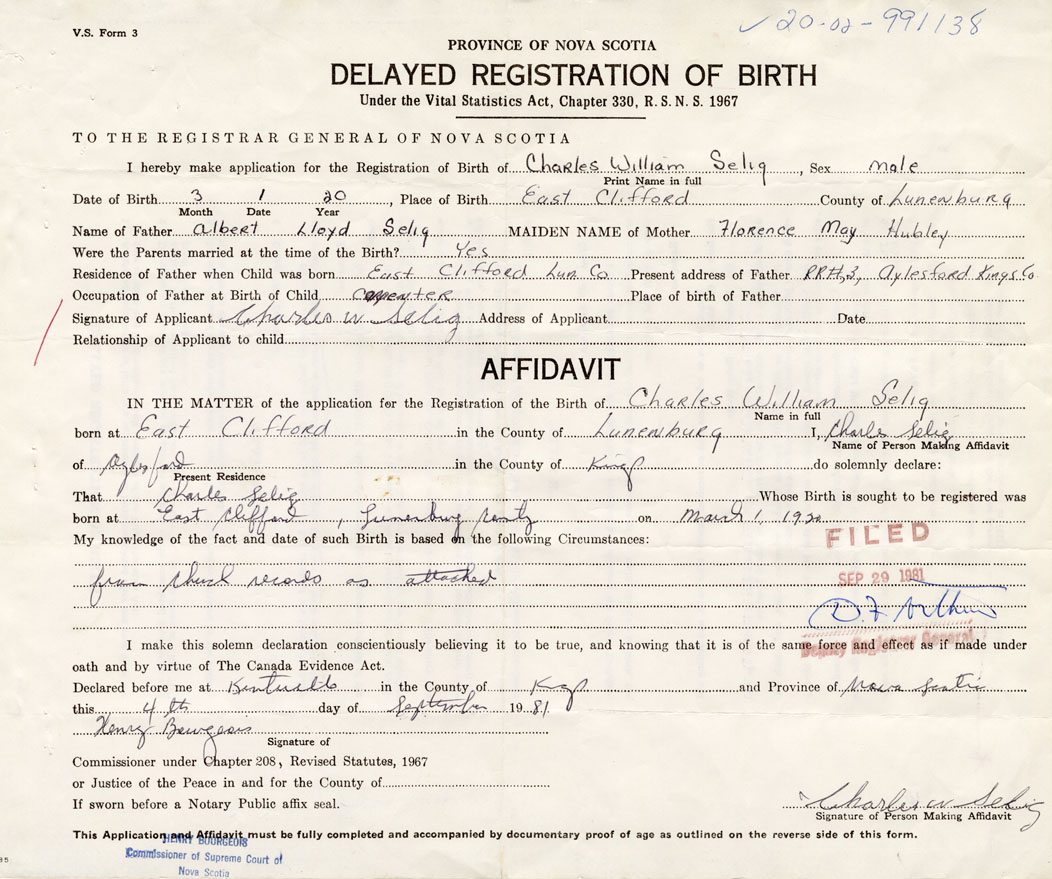 V.S. Form 3
✓ 20-02-991138
PROVINCE OF NOVA SCOTIA
DELAYED REGISTRATION OF BIRTH
Under the Vital Statistics Act, Chapter 330, R.S.N.S. 1967
TO THE REGISTRAR GENERAL OF NOVA SCOTIA
I hereby make application for the Registration of Birth of Charles William Selig, Sex male
Print Name in full
Date of Birth 3 1 20, Place of Birth East Clifford County of Lunenburg
Month Date Year
Name of Father Albert Lloyd Selig MAIDEN NAME of Mother Florence May Hubley
Were the Parents married at the time of the Birth? Yes
Residence of Father when Child was born East Clifford Lun Co Present address of Father RR#3, Aylesford Kings Co
Occupation of Father at Birth of Child Place of birth of Father
Signature of Applicant Charles W Selig Address of Applicant Date
Relationship of Applicant to child
AFFIDAVIT
IN THE MATTER of the application for the Registration of the Birth of Charles William Selig
Name in full
born at East Clifford in the County of Lunenburg I, Charles Selig
Name of Person Making Affidavit
of in the County of Kings do solemnly declare:
Present Residence
That Charles Selig Whose Birth is sought to be registered was
born at East Clifford, Lunenburg on March 1, 1920
My knowledge of the fact and date of such Birth is based on the following Circumstances:
FILED
from church records as attached
SEP 29 1981
D. F. Arthur
Deputy Registrar General
I make this solemn declaration conscientiously believing it to be true, and knowing that it is of the same force and effect as if made under
oath and by virtue of The Canada Evidence Act.
Declared before me at Kentville in the County of Kings and Province of Nova Scotia
this 4th day of September 1981
Henry Bourgeois
Signature of
Commissioner under Chapter 208, Revised Statutes, 1967
or Justice of the Peace in and for the County of
If sworn before a Notary Public affix seal.
Charles W Selig
Signature of Person Making Affidavit
This Application and Affidavit must be fully completed and accompanied by documentary proof of age as outlined on the reverse side of this form.
HENRY BOURGEOIS
Commissioner of Supreme Court of
Nova Scotia